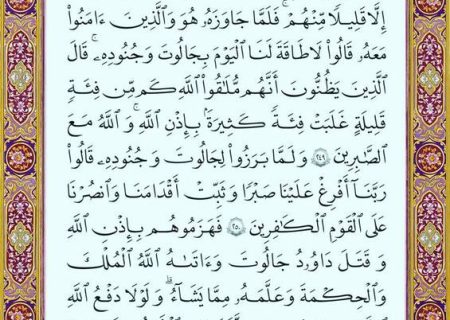 إِلَّا قَلِيلًا مِّنْهُمْ ۚ فَلَمَّا جَاوَزَهُۥ هُوَ وَٱلَّذِينَ ءَامَنُوا۟
مَعَهُۥ قَالُوا۟ لَا طَاقَةَ لَنَا ٱلْيَوْمَ بِجَالُوتَ وَجُنُودِهِۦ ۚ قَالَ
ٱلَّذِينَ يَظُنُّونَ أَنَّهُم مُّلَٰقُوا۟ ٱللَّهِ كَم مِّن فِئَةٍ
قَلِيلَةٍ غَلَبَتْ فِئَةً كَثِيرَةًۢ بِإِذْنِ ٱللَّهِ ۗ وَٱللَّهُ مَعَ
ٱلصَّٰبِرِينَ ٢٤٩ وَلَمَّا بَرَزُوا۟ لِجَالُوتَ وَجُنُودِهِۦ قَالُوا۟
رَبَّنَآ أَفْرِغْ عَلَيْنَا صَبْرًا وَثَبِّتْ أَقْدَامَنَا وَٱنصُرْنَا
عَلَى ٱلْقَوْمِ ٱلْكَٰفِرِينَ ٢٥٠ فَهَزَمُوهُم بِإِذْنِ ٱللَّهِ
وَقَتَلَ دَاوُۥدُ جَالُوتَ وَءَاتَىٰهُ ٱللَّهُ ٱلْمُلْكَ
وَٱلْحِكْمَةَ وَعَلَّمَهُۥ مِمَّا يَشَآءُ ۗ وَلَوْلَا دَفْعُ ٱللَّهِ